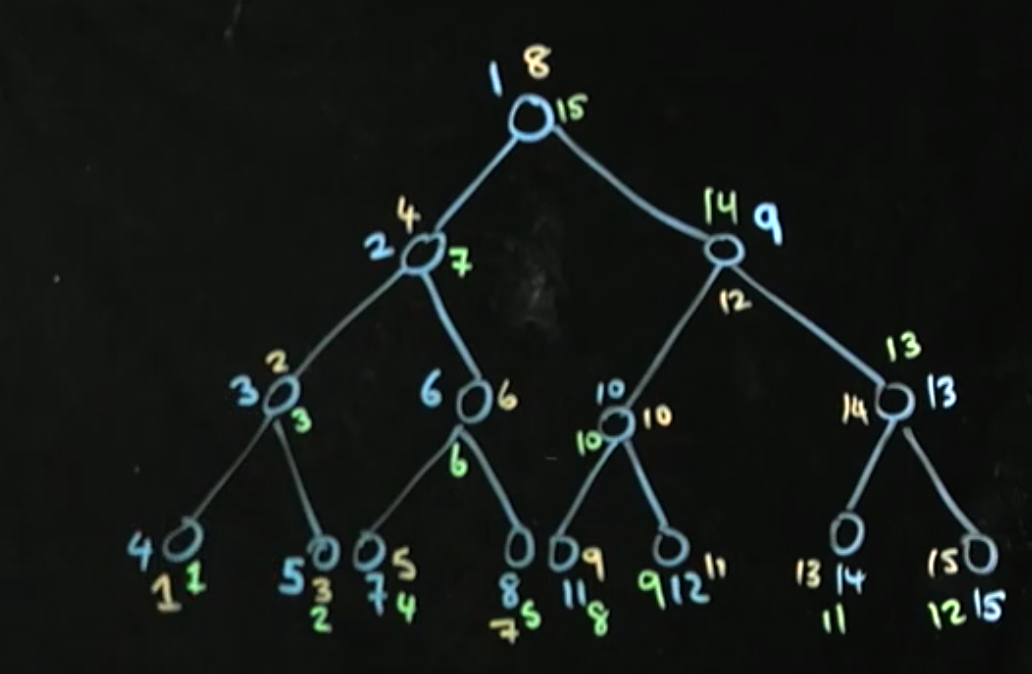 1 8
15
4
2 7
14 9
12
2
3 3
6 6
6
10
10 10
13
14 13
4 1 1
5 3 2
5 7 4
8 7 5
9 11 8
11 9 12
13 14 11
15 12 15